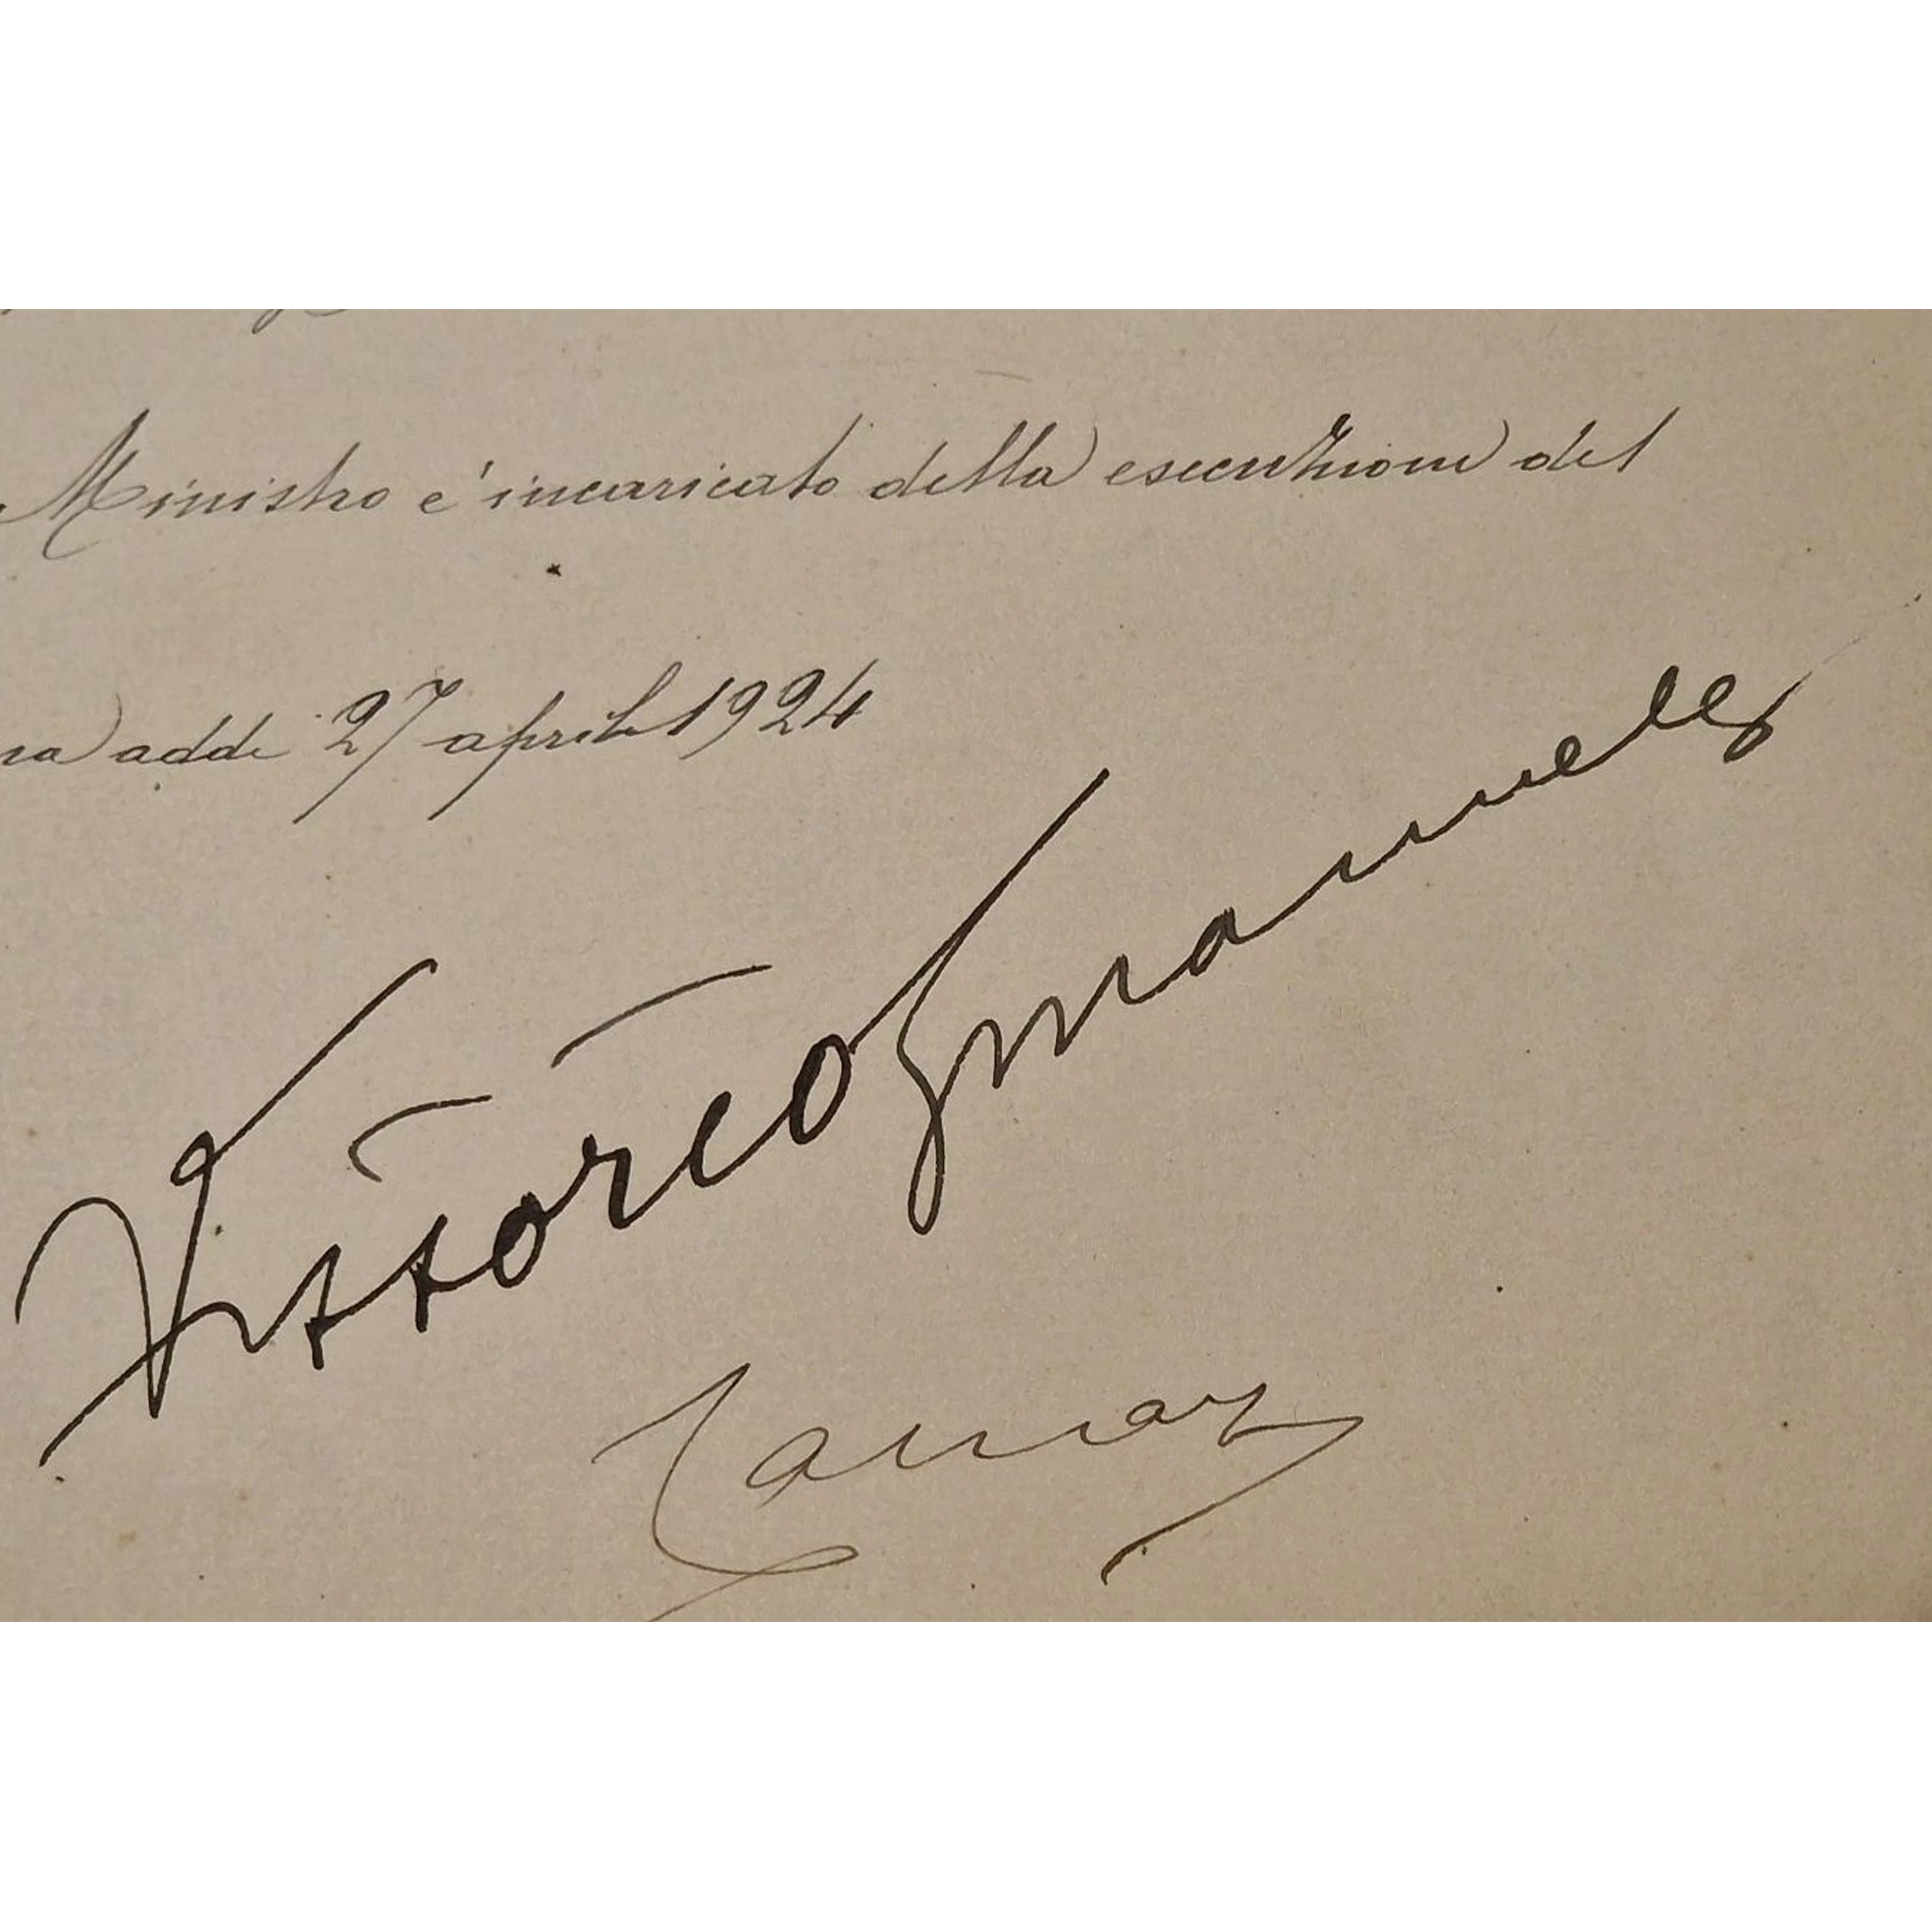 Ministro e' incaricato della esecuzione del
addi 27 aprile 1924
Vittorio Emanuele